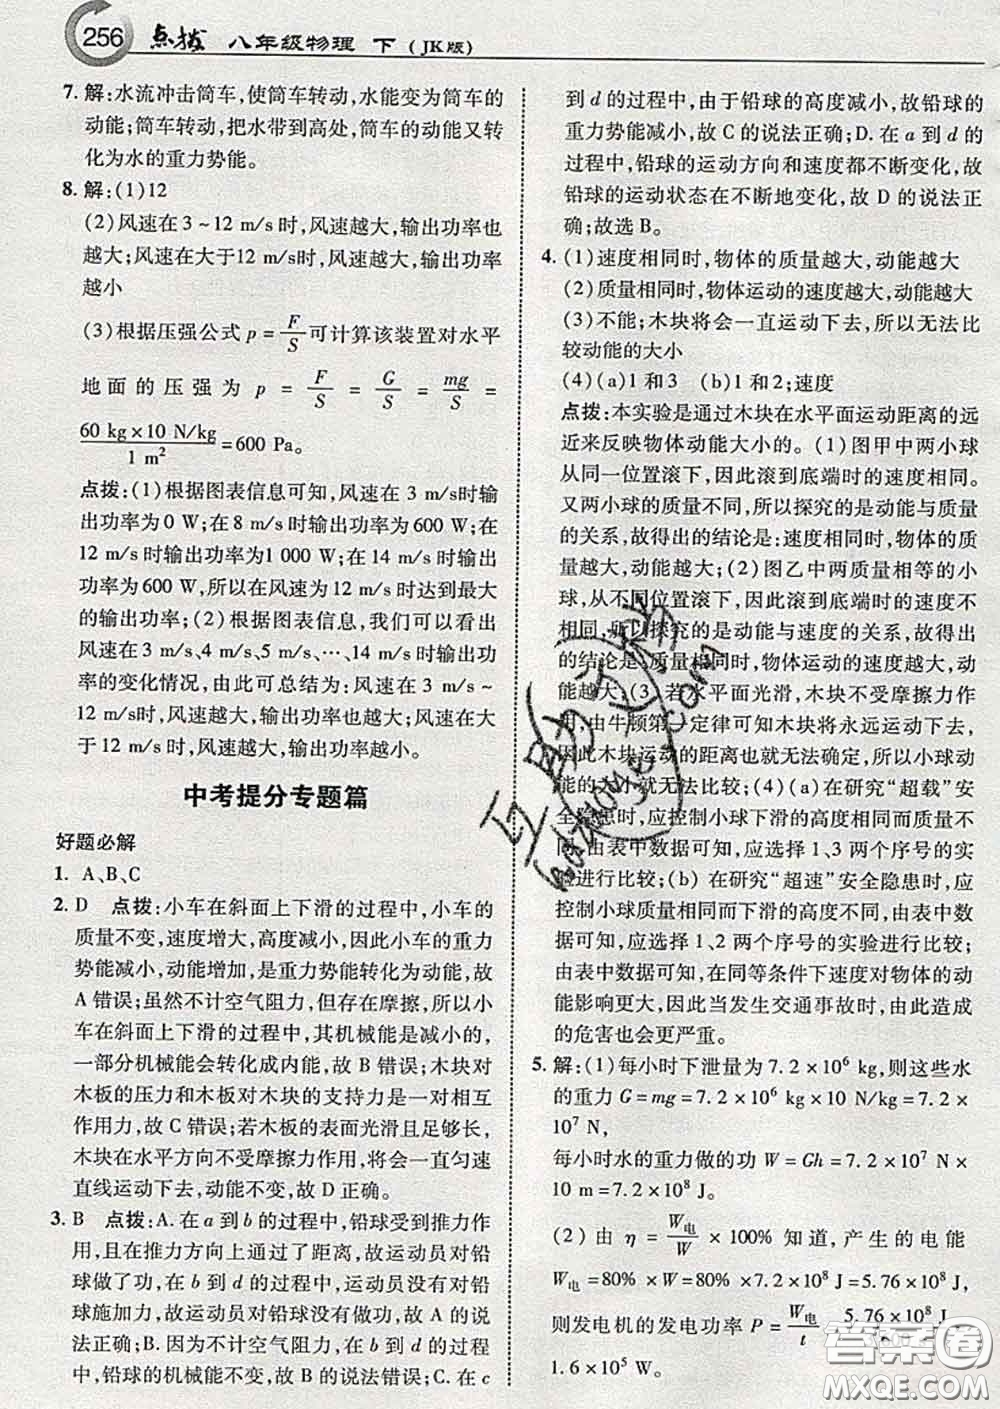 256 点拨 八年级物理 下 (JK版)
7. 解:水流冲击筒车,使筒车转动,水能变为筒车的
动能;筒车转动,把水带到高处,筒车的动能又转
化为水的重力势能。
8. 解:(1)12
(2)风速在 3~12 m/s 时,风速越大,输出功率也
越大;风速在大于12 m/s 时,风速越大,输出功率
越小
(3)根据压强公式 p = F/S 可计算该装置对水平
地面的压强为 p = F/S = G/S = mg/S =
60 kg×10 N/kg / 1 m² = 600 Pa。
点拨:(1)根据图表信息可知,风速在 3 m/s时输
出功率为 0 W;在 8 m/s 时输出功率为 600 W;在
12 m/s 时输出功率为1 000 W;在 14 m/s 时输出
功率为 600 W,所以在风速为 12 m/s 时达到最大
的输出功率;(2)根据图表信息,我们可以看出
风速在 3 m/s、4 m/s、5 m/s、…、14 m/s 时输出功
率的变化情况,由此可总结为:风速在 3 m/s ~
12 m/s 时,风速越大,输出功率也越大;风速在大
于 12 m/s 时,风速越大,输出功率越小。
中考提分专题篇
好题必解
1. A、B、C
2. D 点拨:小车在斜面上下滑的过程中,小车的
质量不变,速度增大,高度减小,因此小车的重力
势能减小,动能增加,是重力势能转化为动能,故
A 错误;虽然不计空气阻力,但存在摩擦,所以小
车在斜面上下滑的过程中,其机械能是减小的,
一部分机械能会转化成内能,故 B 错误;木块对
木板的压力和木板对木块的支持力是一对相互
作用力,故 C 错误;若木板的表面光滑且足够长,
木块在水平方向不受摩擦力作用,将会一直匀速
直线运动下去,动能不变,故 D 正确。
3. B 点拨:A. 在 a 到 b 的过程中,铅球受到推力作
用,并在推力方向上通过了距离,故运动员对铅
球做了功,在 b 到 d 的过程中,运动员没有对铅
球施加力,故运动员对铅球没有做功,故 A 的说
法正确;B. 因为不计空气阻力,在 b 到 d 的过程
中,铅球的机械能不变,故 B 的说法错误;C. 在 c
到 d 的过程中,由于铅球的高度减小,故铅球的
重力势能减小,故 C 的说法正确;D. 在 a 到 d 的
过程中,铅球的运动方向和速度都不断变化,故
铅球的运动状态在不断地变化,故 D 的说法正
确;故选 B。
4. (1)速度相同时,物体的质量越大,动能越大
(2)质量相同时,物体运动的速度越大,动能越大
(3)不能;木块将会一直运动下去,所以无法比
较动能的大小
(4)(a)1 和 3 (b)1 和 2;速度
点拨:本实验是通过木块在水平面运动距离的远
近来反映物体动能大小的。(1)图甲中两小球
从同一位置滚下,因此滚到底端时的速度相同。
又两小球的质量不同,所以探究的是动能与质量
的关系,故得出的结论是:速度相同时,物体的质
量越大,动能越大;(2)图乙中两质量相等的小
球,从不同位置滚下,故滚到底端时的速度不
相同,所以探究的是动能与速度的关系,故得出
的结论是:质量相同时,物体运动的速度越大,动
能越大;(3)若水平面光滑,木块不受摩擦力作
用,由牛顿第一定律可知木块将永远运动下去,
因此木块运动的距离也就无法确定,所以小球动
能的大小就无法比较;(4)(a)在研究“超载”安
全隐患时,应控制小球下滑的高度相同而质量不
同,由表中数据可知,应选择 1、3 两个序号的实
验进行比较;(b) 在研究“超速”安全隐患时,应
控制小球质量相同而下滑的高度不同,由表中数
据可知,应选择 1、2 两个序号的实验进行比较;
由表中数据可知,在同等条件下速度对物体的动
能影响更大,因此当发生交通事故时,由此造成
的危害也会更严重。
5. 解:(1)每小时下泄量为7.2×10⁶ kg,则这些水
的重力 G=mg=7.2×10⁶ kg×10 N/kg=7.2×
10⁷ N,
每小时水的重力做的功 W = Gh = 7.2×10⁷ N×
10 m=7.2×10⁸ J。
(2) 由 η = W电/W × 100% 知道,产生的电能
W电=80% ×W=80% ×7.2×10⁸ J=5.76×10⁸ J,
则发电机的发电功率 P = W电/t = 5.76×10⁸ J
1.6×10⁵ W。
互助习答
hdzuoye.com
答案圈
MXQE.COM